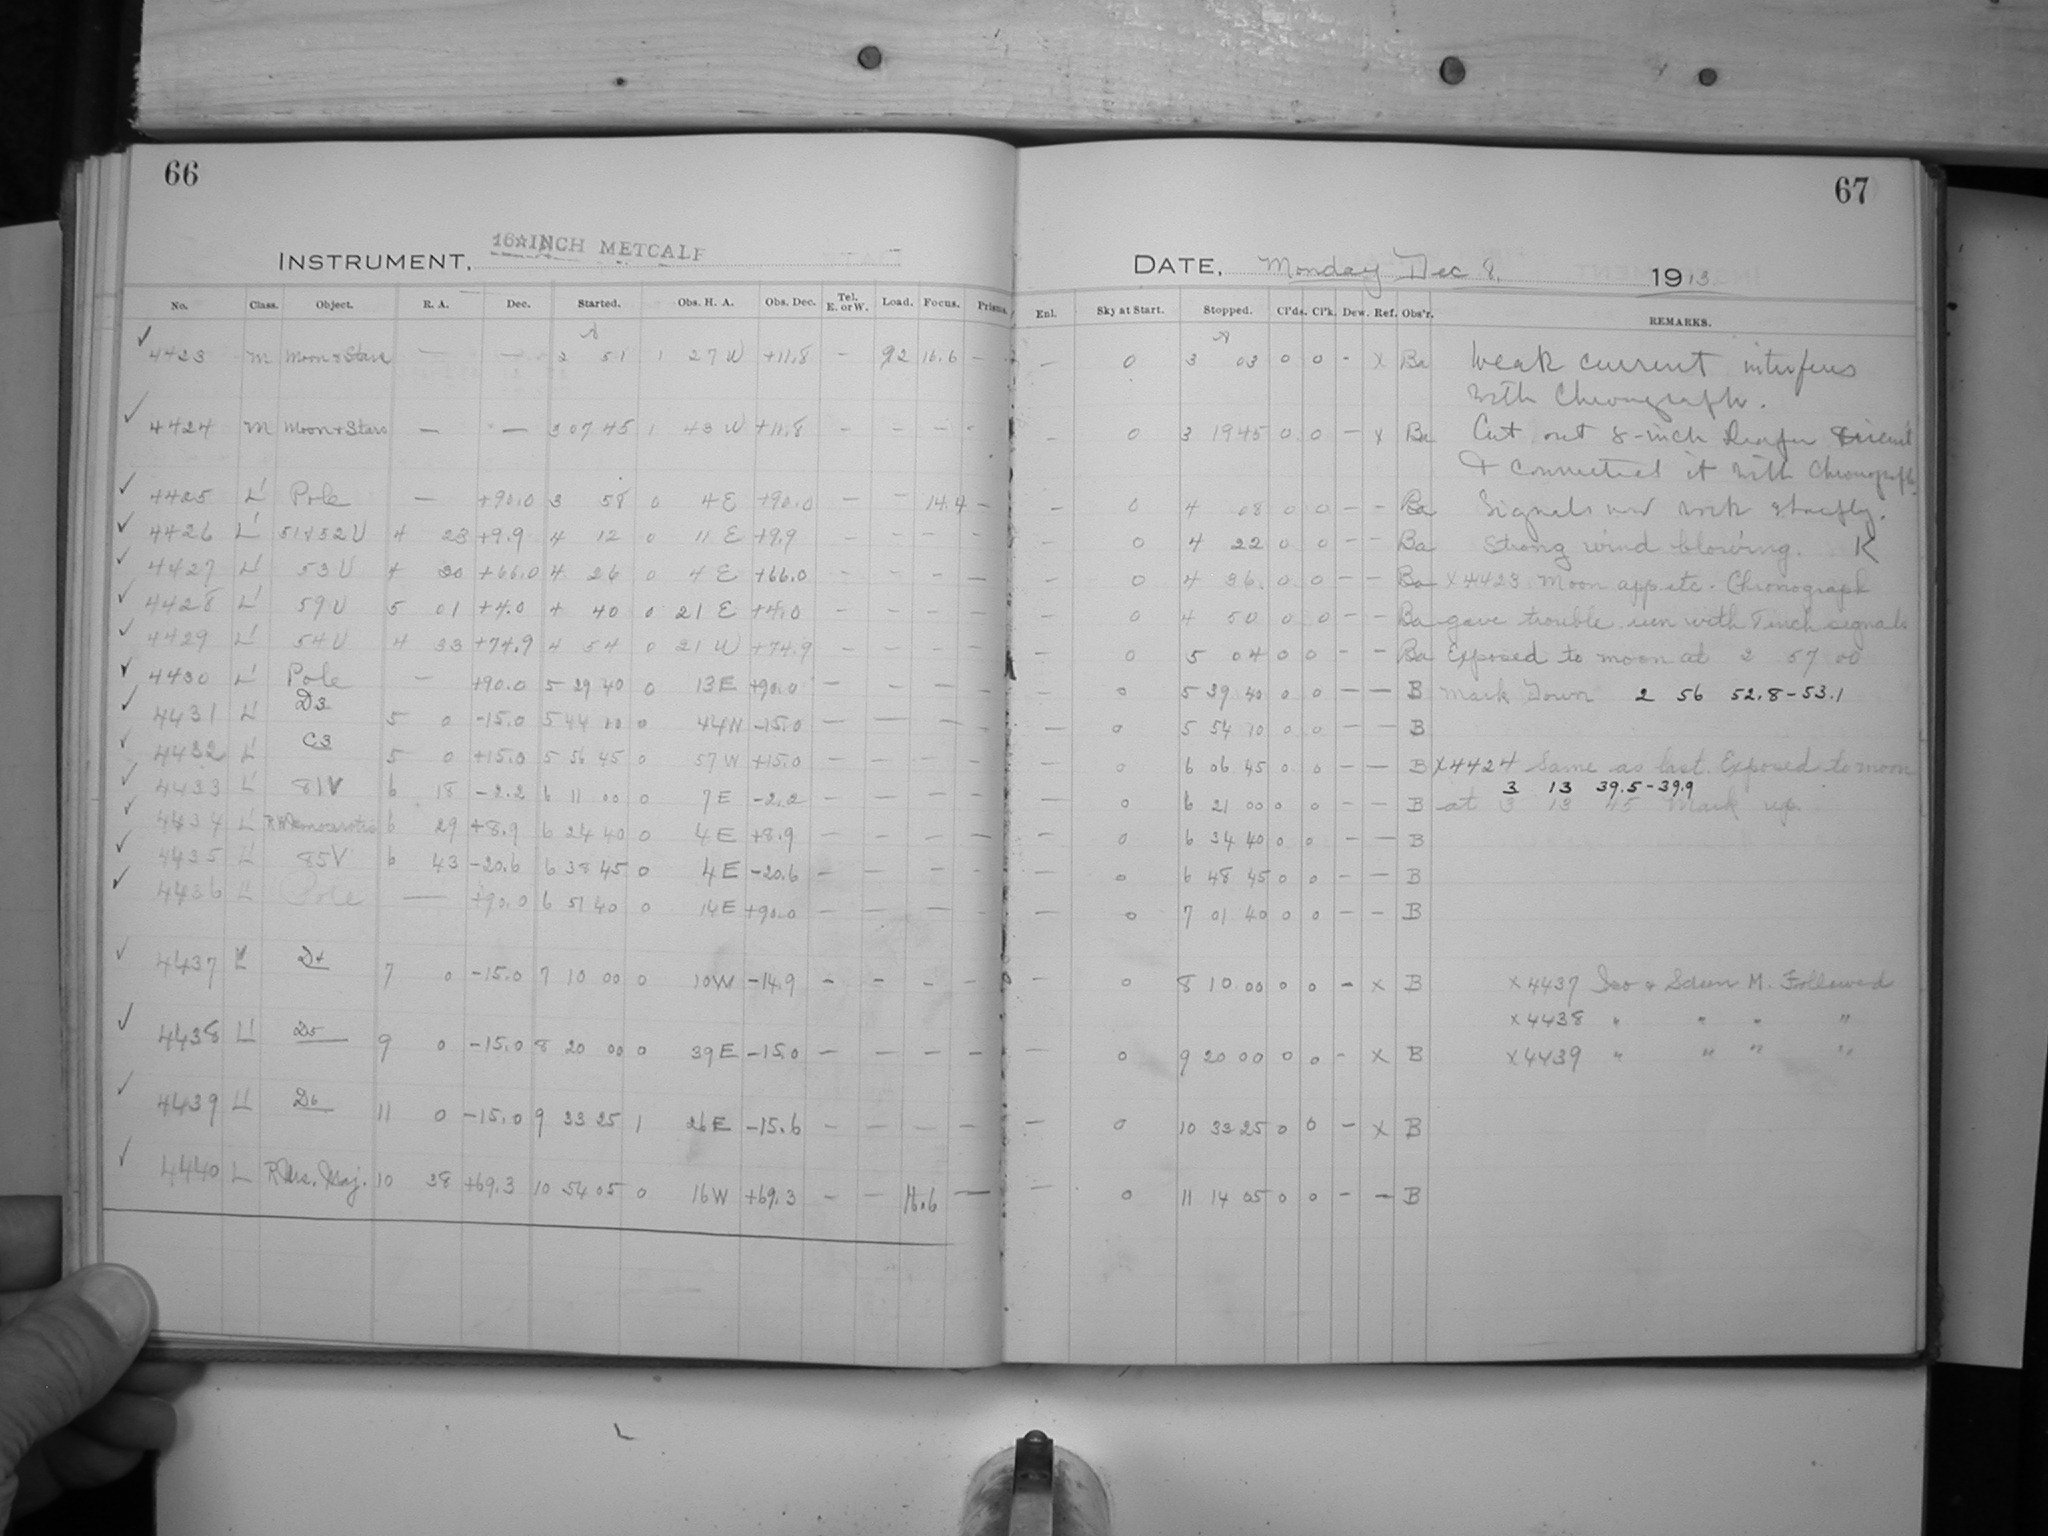 66
INSTRUMENT, 16 INCH METCALF
No. Class. Object. R. A. Dec. Started. Obs. H. A. Obs. Dec. Tel. E. or W. Load. Focus. Prisms.
A
4423 M Moon & Stars — — 2 51 1 27 W +11.8 — 92 16.6 —
4424 M Moon & Stars — — 3 07 45 1 43 W +11.8 — — — -
4425 L' Pole — +90.0 3 58 0 4 E +90.0 — — 14.4 —
4426 L' 51 & 52 U 4 23 +9.9 4 12 0 11 E +9.9 — — — —
4427 L' 53 U 4 30 +66.0 4 26 0 4 E +66.0 — — — —
4428 L' 59 U 5 01 +4.0 4 40 0 21 E +4.0 — — — —
4429 L' 54 U 4 33 +74.9 4 54 0 21 W +74.9 — — — —
4430 L' Pole — +90.0 5 29 40 0 13 E +90.0 — — — —
4431 L' D3 5 0 -15.0 5 44 10 0 44 W -15.0 — — — —
4432 L' C3 5 0 +15.0 5 56 45 0 57 W +15.0 — — — —
4433 L' 81V 6 18 -2.2 6 11 00 0 7 E -2.2 — — — —
4434 L' 6 29 +8.9 6 24 40 0 4 E +8.9 — — — —
4435 L' 85V 6 43 -20.6 6 38 45 0 4 E -20.6 — — — —
4436 L' Pole — +90.0 6 51 40 0 14 E +90.0 — — — —
4437 L' D4 7 0 -15.0 7 10 00 0 10 W -14.9 — — — —
4438 L' D5 9 0 -15.0 8 20 00 0 39 E -15.0 — — — —
4439 L' D6 11 0 -15.0 9 33 25 1 26 E -15.6 — — — —
4440 L R Urs. Maj. 10 38 +69.3 10 54 05 0 16 W +69.3 — — 16.6 —
67
DATE, Monday Dec 8. 1913
Enl. Sky at Start. Stopped. Cl'ds. Cl'k. Dew. Ref. Obs'r. REMARKS.
A
— 0 3 03 0 0 - x Ba Weak current interferes
with Chronograph.
— 0 3 19 45 0 0 — x Ba Cut out 8-inch Draper circuit
& connected it with Chronograph.
— 0 4 08 0 0 — — Ba Signals now work
0 4 22 0 0 — — Ba Strong wind blowing. K
0 4 36 0 0 — — Ba x 4423 Moon app etc. Chronograph
0 4 50 0 0 — — Ba gave trouble run with signals
0 5 04 0 0 — — Ba Exposed to moon at 2 57 00
— 0 5 39 40 0 0 — — B Mark Down 2 56 52.8-53.1
— 0 5 54 10 0 0 — — B
0 6 06 45 0 0 — — B x 4424 Same as last. Exposed to moon
3 13 39.5-39.9
— 0 6 21 00 0 0 — — B at 3 13 45 Mark up.
— 0 6 34 40 0 0 — — B
— 0 6 48 45 0 0 — — B
— 0 7 01 40 0 0 — — B
— 0 8 10 00 0 0 - x B x 4437 M. Followed
x 4438 " " " "
— 0 9 20 00 0 0 - x B x 4439 " " " "
— 0 10 33 25 0 0 — x B
— 0 11 14 05 0 0 — — B